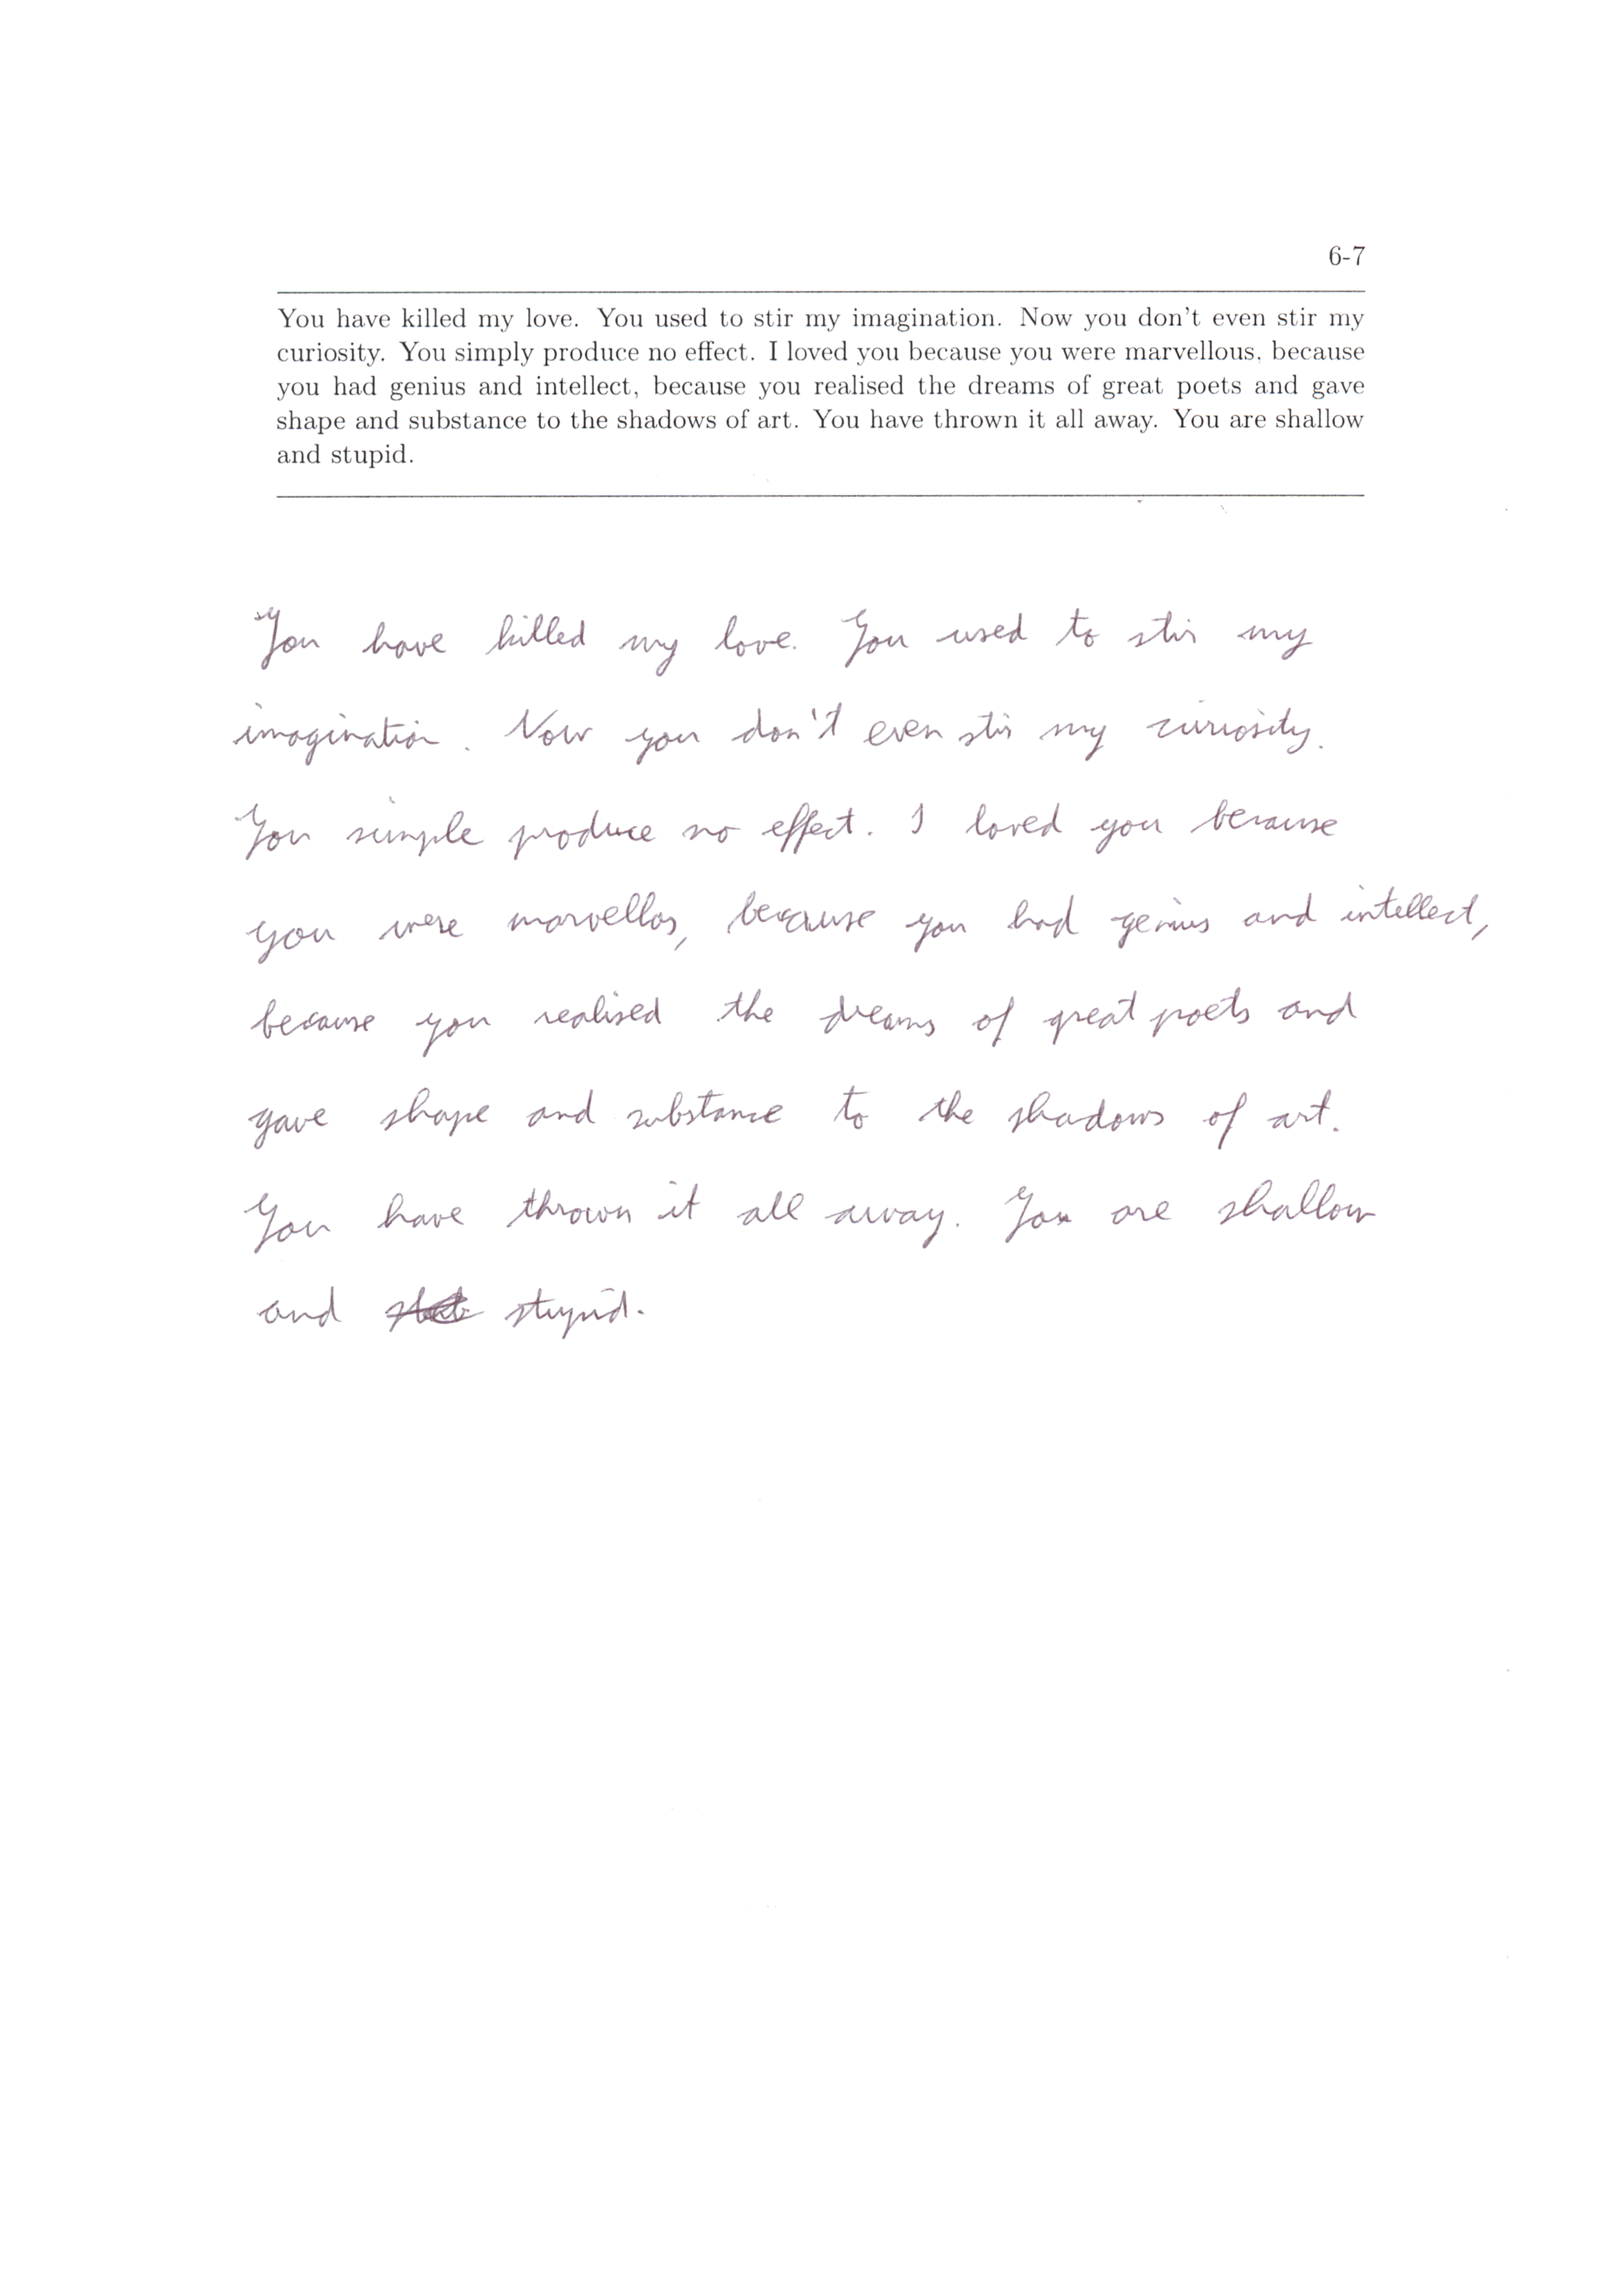 6-7
You have killed my love. You used to stir my imagination. Now you don't even stir my
curiosity. You simply produce no effect. I loved you because you were marvellous, because
you had genius and intellect, because you realised the dreams of great poets and gave
shape and substance to the shadows of art. You have thrown it all away. You are shallow
and stupid.
You have killed my love. You used to stir my
imagination. Now you don't even stir my curiosity.
You simple produce no effect. I loved you because
you were marvellos, because you had genius and intellect,
because you realised the dreams of great poets and
gave shape and substance to the shadows of art.
You have thrown it all away. You are shallow
and stupid.